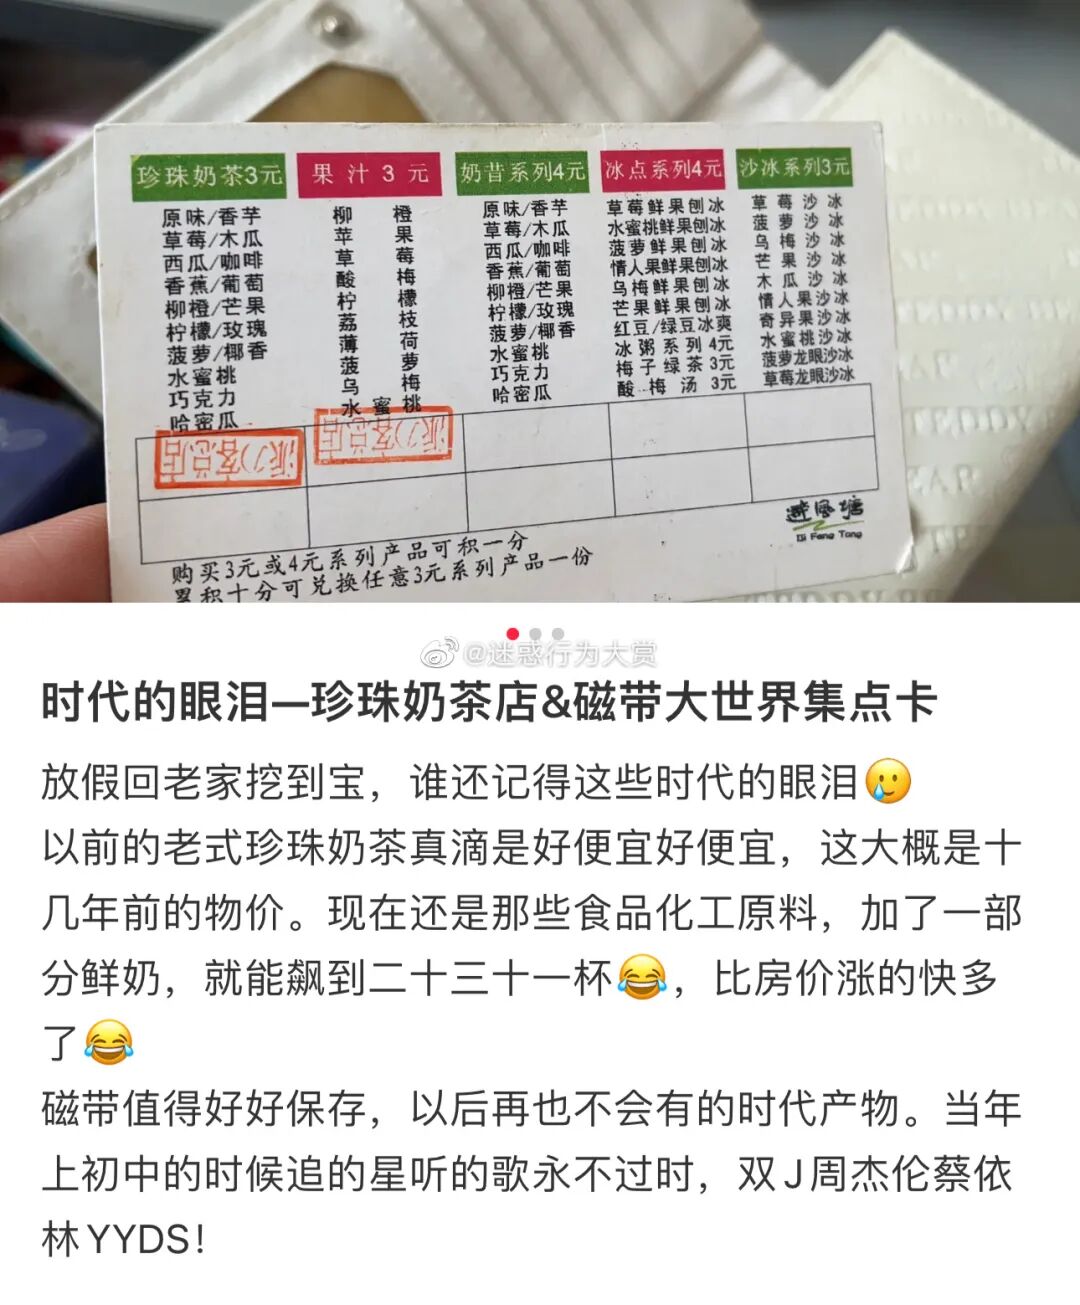 珍珠奶茶3元
原味/香芋
草莓/木瓜
西瓜/咖啡
香蕉/葡萄
柳橙/芒果
柠檬/玫瑰
菠萝/椰香
水蜜桃
巧克力
哈密瓜
果汁3元
柳橙
苹果
草莓
酸梅
柠檬
荔枝
薄荷
菠萝
乌梅
水蜜桃
奶昔系列4元
原味/香芋
草莓/木瓜
西瓜/咖啡
香蕉/葡萄
柳橙/芒果
柠檬/玫瑰
菠萝/椰香
水蜜桃
巧克力
哈密瓜
冰点系列4元
草莓鲜果刨冰
水蜜桃鲜果刨冰
菠萝鲜果刨冰
情人果鲜果刨冰
乌梅鲜果刨冰
芒果鲜果刨冰
红豆/绿豆冰爽
冰粥系列4元
梅子绿茶3元
酸梅汤3元
沙冰系列3元
草莓沙冰
菠萝沙冰
乌梅沙冰
芒果沙冰
木瓜沙冰
情人果沙冰
奇异果沙冰
水蜜桃沙冰
菠萝龙眼沙冰
草莓龙眼沙冰
派力客总店
派力客总店
避风塘
Bi Feng Tang
购买3元或4元系列产品可积一分
累积十分可兑换任意3元系列产品一份
@迷惑行为大赏
时代的眼泪—珍珠奶茶店&磁带大世界集点卡
放假回老家挖到宝，谁还记得这些时代的眼泪🥲
以前的老式珍珠奶茶真滴是好便宜好便宜，这大概是十
几年前的物价。现在还是那些食品化工原料，加了一部
分鲜奶，就能飙到二十三十一杯😂，比房价涨的快多
了😂
磁带值得好好保存，以后再也不会有的时代产物。当年
上初中的时候追的星听的歌永不过时，双J周杰伦蔡依
林YYDS！